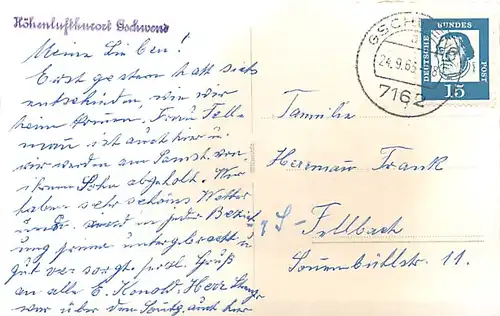 Höhenluftkurort Gschwend
Meine Lieben!
Erst gestern hat sichs
entschieden, wie wir
heim kommen. Frau Fell-
man ist auch hier u.
wir werden am Samst. von
ihrem Sohn abgeholt. Wir
haben sehr schönes Wetter
und sind in jeder Bezieh-
ung prima untergebracht u.
gut versorgt. herzl. Gruß
an alle E. Konold. Herr
war über den Sonntg. auch hier
GSCHWEND
24.9.63
7162
DEUTSCHE BUNDESPOST
15
Familie
Hermann Frank
Fellbach
11.